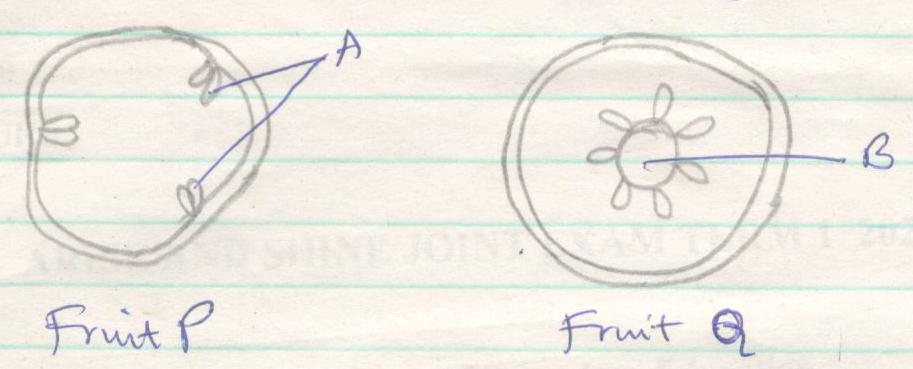 A
B
ARISE AND SHINE JOINT EXAM TERM 1 202
Fruit P
Fruit Q